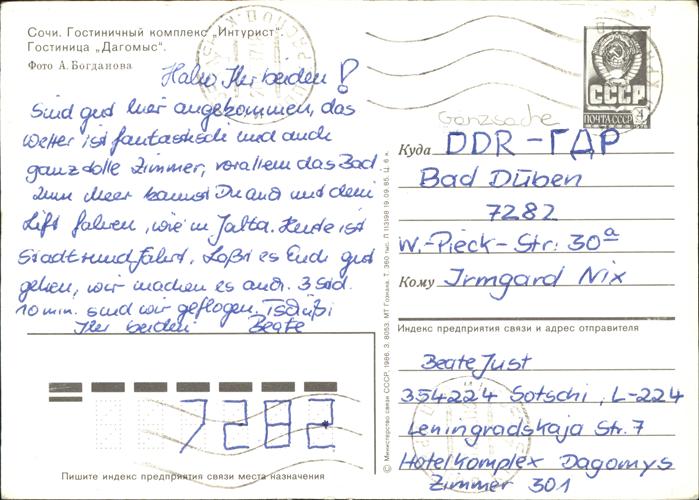 Сочи. Гостиничный комплекс „Интурист".
Гостиница „Дагомыс".
Фото А. Богданова
Hallo Ihr beiden!
Sind gut hier angekommen, das
Wetter ist fantastisch und auch
ganz dolle Zimmer, vor allem das Bad.
Zum Meer kannst Du auch mit dem
Lift fahren, wie in Jalta. Heute ist
Stadtrundfahrt. Laßt es Euch gut
gehen, wir machen es auch. 3 Std.
10 min. sind wir geflogen. Tschüßi
Ihr beiden Beate
7282
Пишите индекс предприятия связи места назначения
© Министерство связи СССР, 1986. З. 8053. МТ Гознака. Т. 360 тыс. Л 113398 19.09.85. Ц. 6 к.
СССР
ПОЧТА СССР 4
Ganzsache
Куда DDR - ГДР
Bad Düben
7282
W.-Pieck-Str. 30a
Кому Irmgard Nix
Индекс предприятия связи и адрес отправителя
Beate Just
354224 Sotschi, L-224
Leningradskaja Str. 7
Hotelkomplex Dagomys
Zimmer 301